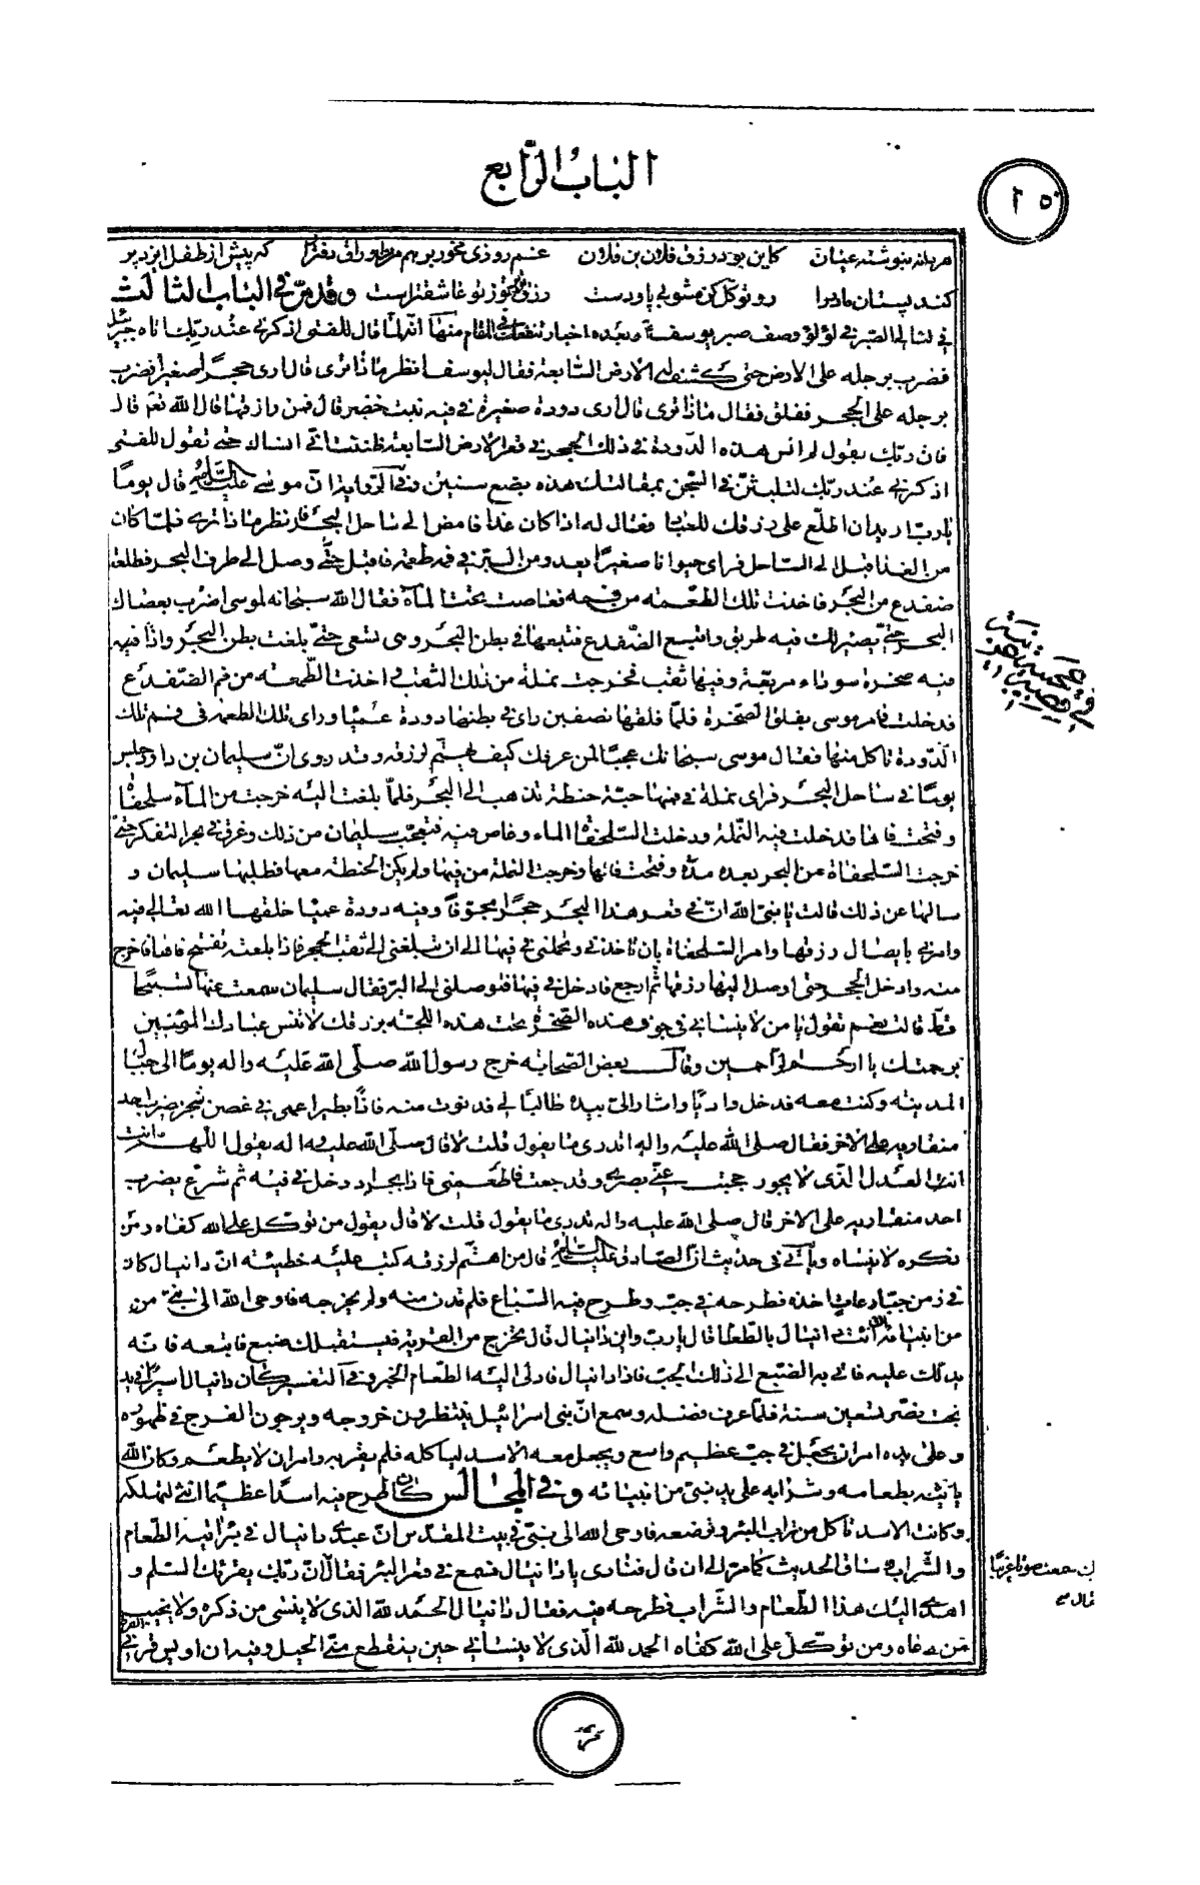 الباب الرابع
هر دانه بنوشته عیان کاین بود رزق فلان بن فلان غم روزی مخور برهم مزن اوراق دفتر را که پیش از طفل ایزد پر
کند پستان مادر را رو توکل کن مشو بی پا و دست رزق تو بر تو ز تو عاشقتر است وقد مر فی الباب الثالث
فی لئالی الصبر فی لؤلؤ وصف صبر یوسف وبعده اخبار تنفعک فی المقام منها انه لما قال للفتی اذکرنی عند ربک اتاه جبرئیل
فضرب برجله علی الارض حتی کشف له الارض السابعة فقال لیوسف انظر ماذا تری قال اری حجرا صغیرا فضرب
برجله علی الحجر ففلق فقال ماذا تری قال اری دودة صغیرة فی فیه نبت خضر قال فمن رازقها قال الله نعم قال
فان ربک یقول لم انس هذه الدودة فی ذلک الحجر فی قعر الارض السابعة ظننت انی انساک حتی تقول للفتی
اذکرنی عند ربک لتلبثن فی السجن بمقالتک هذه بضع سنین وفی الروایة ان موسی علیه السلام قال یوما
یا رب ارید ان اطلع علی رزقک للعباد فقال له اذا کان غدا فامض الی ساحل البحر فانظر ماذا تری فلما کان
من الغد اقبل الی الساحل فرای حیوانا صغیرا یعدو من البر فی فیه طعمة فاقبل حتی وصل الی طرف البحر فطلعه
ضفدع من البحر فاخذت تلک الطعمه من فمه فغاصت تحت الماء فقال الله سبحانه لموسی اضرب بعصاک
البحر حتی یصیر لک فیه طریق واتبع الضفدع فتبعها فی بطن البحر وهی تسعی حتی بلغت بطن البحر واذا فیه
فیه صخرة سوداء مربعة وفیها ثقب فخرجت نملة من ذلک الثقب اخذت الطعمه من فم الضفدع
فدخلت فامر موسی بفلق الصخرة فلما فلقها نصفین رای فی بطنها دودة عمیا ورای تلک الطعمه فی فم تلک
الدودة تاکل منها فقال موسی سبحانک عجبا لمن عرفک کیف یهتم لرزقه وقد روی ان سلیمان بن داود جلس
یوما فی ساحل البحر فرای نملة فی فیها حبة حنطة تذهب الی البحر فلما بلغت الیه خرجت من الماء سلحفاة
وفتحت فاها فدخلت فیه النملة ودخلت السلحفاة الماء وغاص فیه فتعجب سلیمان من ذلک وغرق فی بحر التفکر حتی
خرجت السلحفاة من البحر بعده مدة وفتحت فاها وخرجت النملة من فیها ولم یکن الحنطة معها فطلبها سلیمان و
سالها عن ذلک قالت یا نبی الله ان فی قعر هذا البحر حجرا مجوفا وفیه دودة عمیا خلقها الله تعالی فیه
وامرنی بایصال رزقها وامر السلحفاة بان تاخذنی وتحملنی فی فیها الی ان تبلغنی الی ثقب الحجر فاذا بلغته تفتح فاها فاخرج
منه وادخل الحجر حتی اوصل الیها رزقها ثم ارجع فادخل فی فیها فتوصلنی الی البر فقال سلیمان سمعت عنها تسبیحا
قط قالت نعم تقول یا من لا ینسانی فی جوف هذه الصخرة تحت هذه اللجة برزقک لا تنس عبادک المؤمنین
برحمتک یا ارحم الراحمین وقال بعض الصحابه خرج رسول الله صلی الله علیه واله یوما الی جبال
المدینه وکنت معه فدخل وادیا واشار الی بیده طالبا لی فدنوت منه فاذا بطیر اعمی فی غصن شجر یضرب احد
منقاریه علی الاخر فقال صلی الله علیه واله اتدری ما یقول قلت لا قال صلی الله علیه واله یقول اللهم انت
انت العدل الذی لا یجور حجبت عنی بصری وقد جعت فاطعمنی فاذا بجراد دخل فی فیه ثم شرع یضرب
احد منقاریه علی الاخر قال صلی الله علیه واله تدری ما یقول قلت لا قال یقول من توکل علی الله کفاه ومن
ذکره لا ینساه ویأتی فی حدیث ان الصادق علیه السلام قال من اهتم لرزقه کتب علیه خطیئه ان دانیال کان
فی زمن جبار عات اخذه فطرحه فی جب وطرح فیه السباع فلم تدن منه ولم یخرجه فاوحی الله الی نبی من
من انبیائه ان ائت دانیال بالطعام قال یا رب واین دانیال قال تخرج من القریة فیستقبلک ضبع فاتبعه فانه
یدلک علیه فاتی به الضبع الی ذلک الجب فاذا دانیال فادلی الیه الطعام الخبر وفی التفسیر کان دانیال اسیرا فی ید
بخت نصر تسعین سنة فلما عرف فضله وسمع ان بنی اسرائیل ینتظرون خروجه ویرجون الفرج فی ظهوره
وعلی یده امر ان یجعل فی جب عظیم واسع ویجعل معه الاسد لیاکله فلم یقربه وامر ان لا یطعم وکان الله
یاتیه بطعامه وشرابه علی ید نبی من انبیائه وفی المجالس کان طرح فیه اسدا عظیما انثی لتهلکه
وکانت الاسد تاکل من تراب البئر وترضعه فاوحی الله الی نبی فی بیت المقدس ان عبدی دانیال فی بئر اتیه الطعام
والشراب ساق الحدیث کما مر الی ان قال فنادی یا دانیال فسمع فی قعر البئر فقال ان ربک یقرئک السلم و
اهدی الیک هذا الطعام والشراب فطرحه فیه فقال دانیال الحمد لله الذی لا ینسی من ذکره ولا یخیب
من دعاه ومن توکل علی الله کفاه الحمد لله الذی لا ینسانی حین ینقطع منی الحیل وفیه ان اویس قرنی